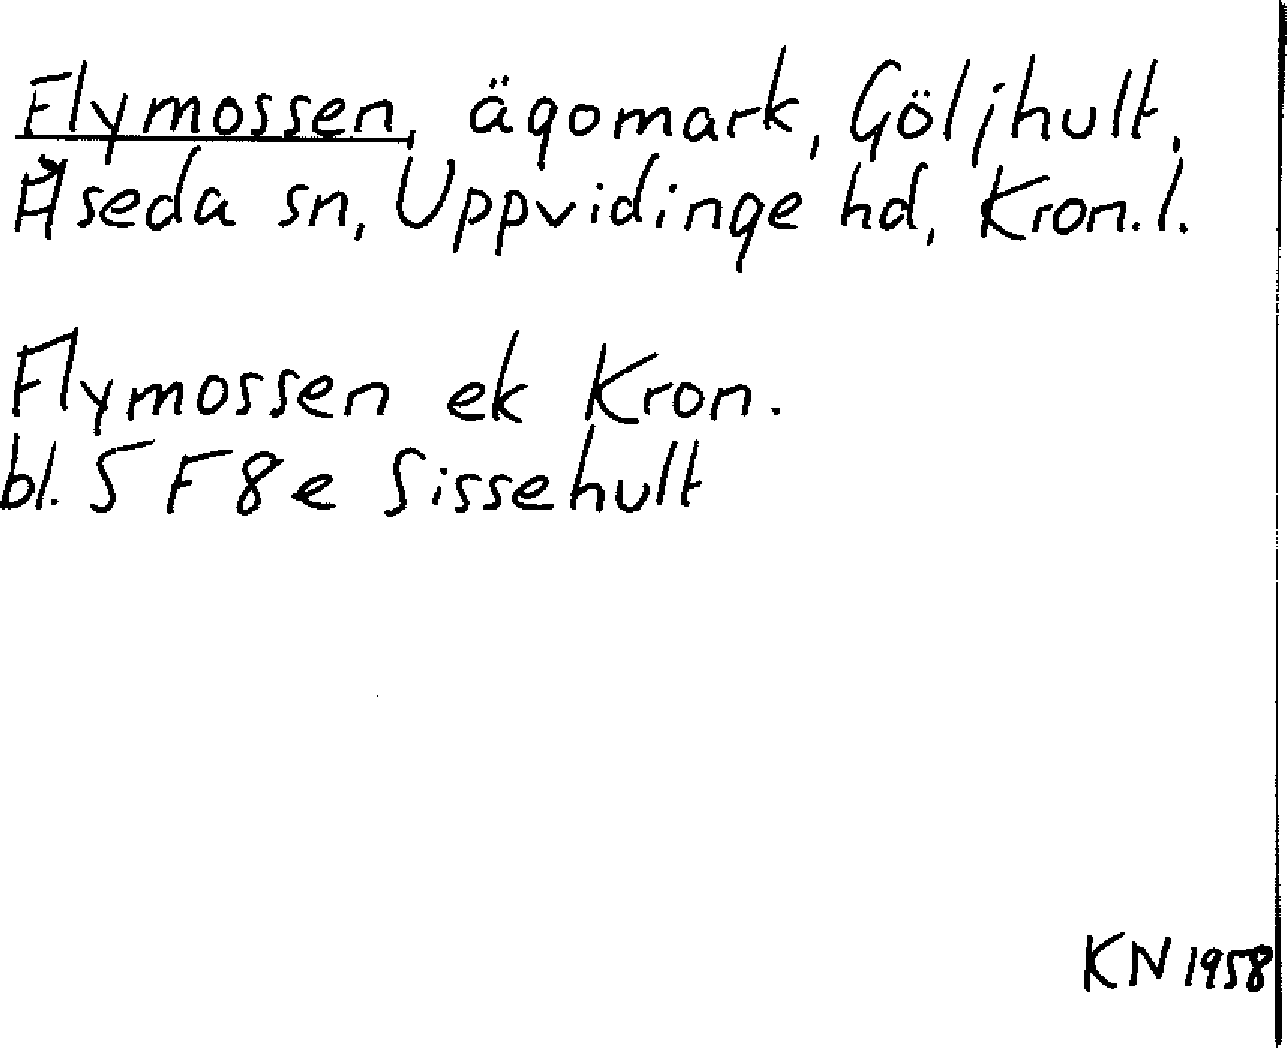 Flymossen, ägomark, Göljhult,
Åseda sn, Uppvidinge hd, Kron.l.
Flymossen ek Kron.
bl. 5 F 8 e Sissehult
KN 1958